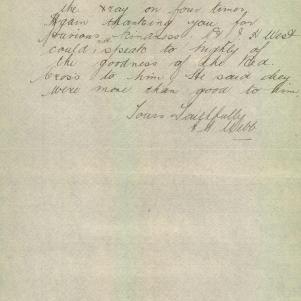 the xray on four times
Again thanking you for
Kindness. Pt J H West
could speak to highly of
the goodness of the Red
Cross to him. He said they
were more than good to him
Yours Faithfully
H Webb